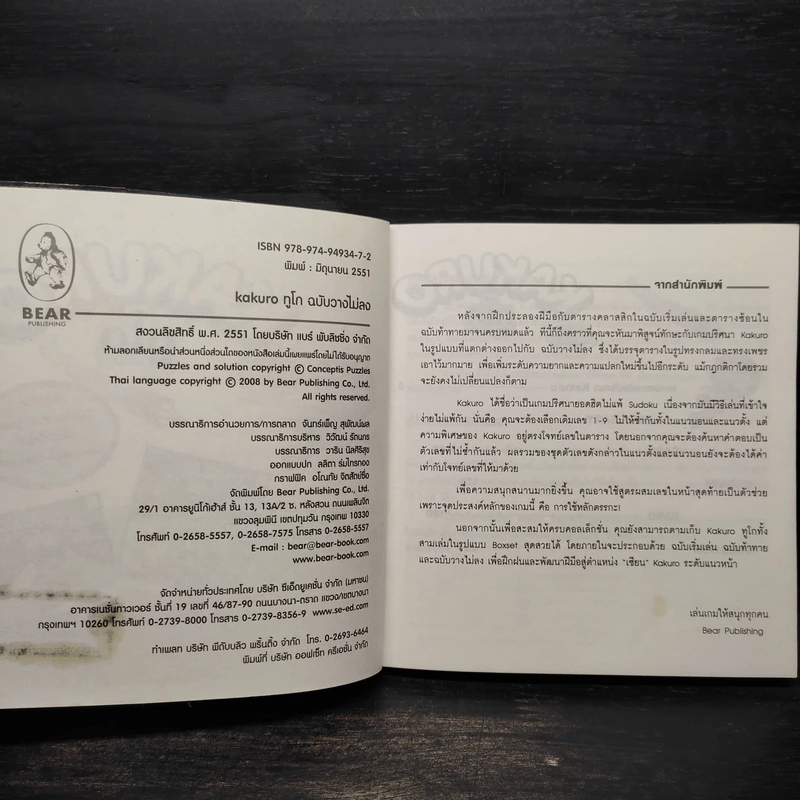 BEAR
PUBLISHING
ISBN 978-974-94934-7-2
พิมพ์ : มิถุนายน 2551
kakuro ทูโก ฉบับวางไม่ลง
สงวนลิขสิทธิ์ พ.ศ. 2551 โดยบริษัท แบร์ พับลิชชิ่ง จำกัด
ห้ามลอกเลียนหรือนำส่วนหนึ่งส่วนใดของหนังสือเล่มนี้เผยแพร่โดยไม่ได้รับอนุญาต
Puzzles and solution copyright © Conceptis Puzzles
Thai language copyright © 2008 by Bear Publishing Co., Ltd.
All rights reserved.
บรรณาธิการอำนวยการ/การตลาด จันทร์เพ็ญ สุพัฒน์ผล
บรรณาธิการบริหาร วิวัฒน์ รัตนกร
บรรณาธิการ วาริน นิลศิริสุข
ออกแบบปก ลลิตา ร่มไทรทอง
กราฟฟิค อโณทัย จิตสัตย์ซื่อ
จัดพิมพ์โดย Bear Publishing Co., Ltd.
29/1 อาคารยูนิโก้เฮ้าส์ ชั้น 13, 13A/2 ซ. หลังสวน ถนนเพลินจิต
แขวงลุมพินี เขตปทุมวัน กรุงเทพฯ 10330
โทรศัพท์ 0-2658-5557, 0-2658-7575 โทรสาร 0-2658-5557
E-mail : bear@bear-book.com
www.bear-book.com
จัดจำหน่ายทั่วประเทศโดย บริษัท ซีเอ็ดยูเคชั่น จำกัด (มหาชน)
อาคารเนชั่นทาวเวอร์ ชั้นที่ 19 เลขที่ 46/87-90 ถนนบางนา-ตราด แขวง/เขตบางนา
กรุงเทพฯ 10260 โทรศัพท์ 0-2739-8000 โทรสาร 0-2739-8356-9 www.se-ed.com
ทำเพลท บริษัท พีดับบลิว พริ้นติ้ง จำกัด โทร. 0-2693-6464
พิมพ์ที่ บริษัท ออฟเซ็ท ครีเอชั่น จำกัด
จากสำนักพิมพ์
หลังจากฝึกประลองฝีมือกับตารางคลาสสิกในฉบับเริ่มเล่นและตารางซ้อนใน
ฉบับท้าทายมาจนครบหมดแล้ว ทีนี้ก็ถึงคราวที่คุณจะหันมาพิสูจน์ทักษะกับเกมปริศนา Kakuro
ในรูปแบบที่แตกต่างออกไปกับ ฉบับวางไม่ลง ซึ่งได้บรรจุตารางในรูปทรงกลมและทรงเพชร
เอาไว้มากมาย เพื่อเพิ่มระดับความยากและความแปลกใหม่ขึ้นไปอีกระดับ แม้กฎกติกาโดยรวม
จะยังคงไม่เปลี่ยนแปลงก็ตาม
Kakuro ได้ชื่อว่าเป็นเกมปริศนายอดฮิตไม่แพ้ Sudoku เนื่องจากมันมีวิธีเล่นที่เข้าใจ
ง่ายไม่แพ้กัน นั่นคือ คุณจะต้องเลือกเติมเลข 1-9 ไม่ให้ซ้ำกันทั้งในแนวนอนและแนวตั้ง แต่
ความพิเศษของ Kakuro อยู่ตรงโจทย์เลขในตาราง โดยนอกจากคุณจะต้องค้นหาคำตอบเป็น
ตัวเลขที่ไม่ซ้ำกันแล้ว ผลรวมของชุดตัวเลขดังกล่าวในแนวตั้งและแนวนอนยังจะต้องได้ค่า
เท่ากับโจทย์เลขที่ให้มาด้วย
เพื่อความสนุกสนานมากยิ่งขึ้น คุณอาจใช้สูตรผสมเลขในหน้าสุดท้ายเป็นตัวช่วย
เพราะจุดประสงค์หลักของเกมนี้ คือ การใช้หลักตรรกะ!
นอกจากนั้นเพื่อสะสมให้ครบคอลเล็กชั่น คุณยังสามารถตามเก็บ Kakuro ทูโกทั้ง
สามเล่มในรูปแบบ Boxset สุดสวยได้ โดยภายในจะประกอบด้วย ฉบับเริ่มเล่น ฉบับท้าทาย
และฉบับวางไม่ลง เพื่อฝึกฝนและพัฒนาฝีมือสู่ตำแหน่ง "เซียน" Kakuro ระดับแนวหน้า
เล่นเกมให้สนุกทุกคน
Bear Publishing